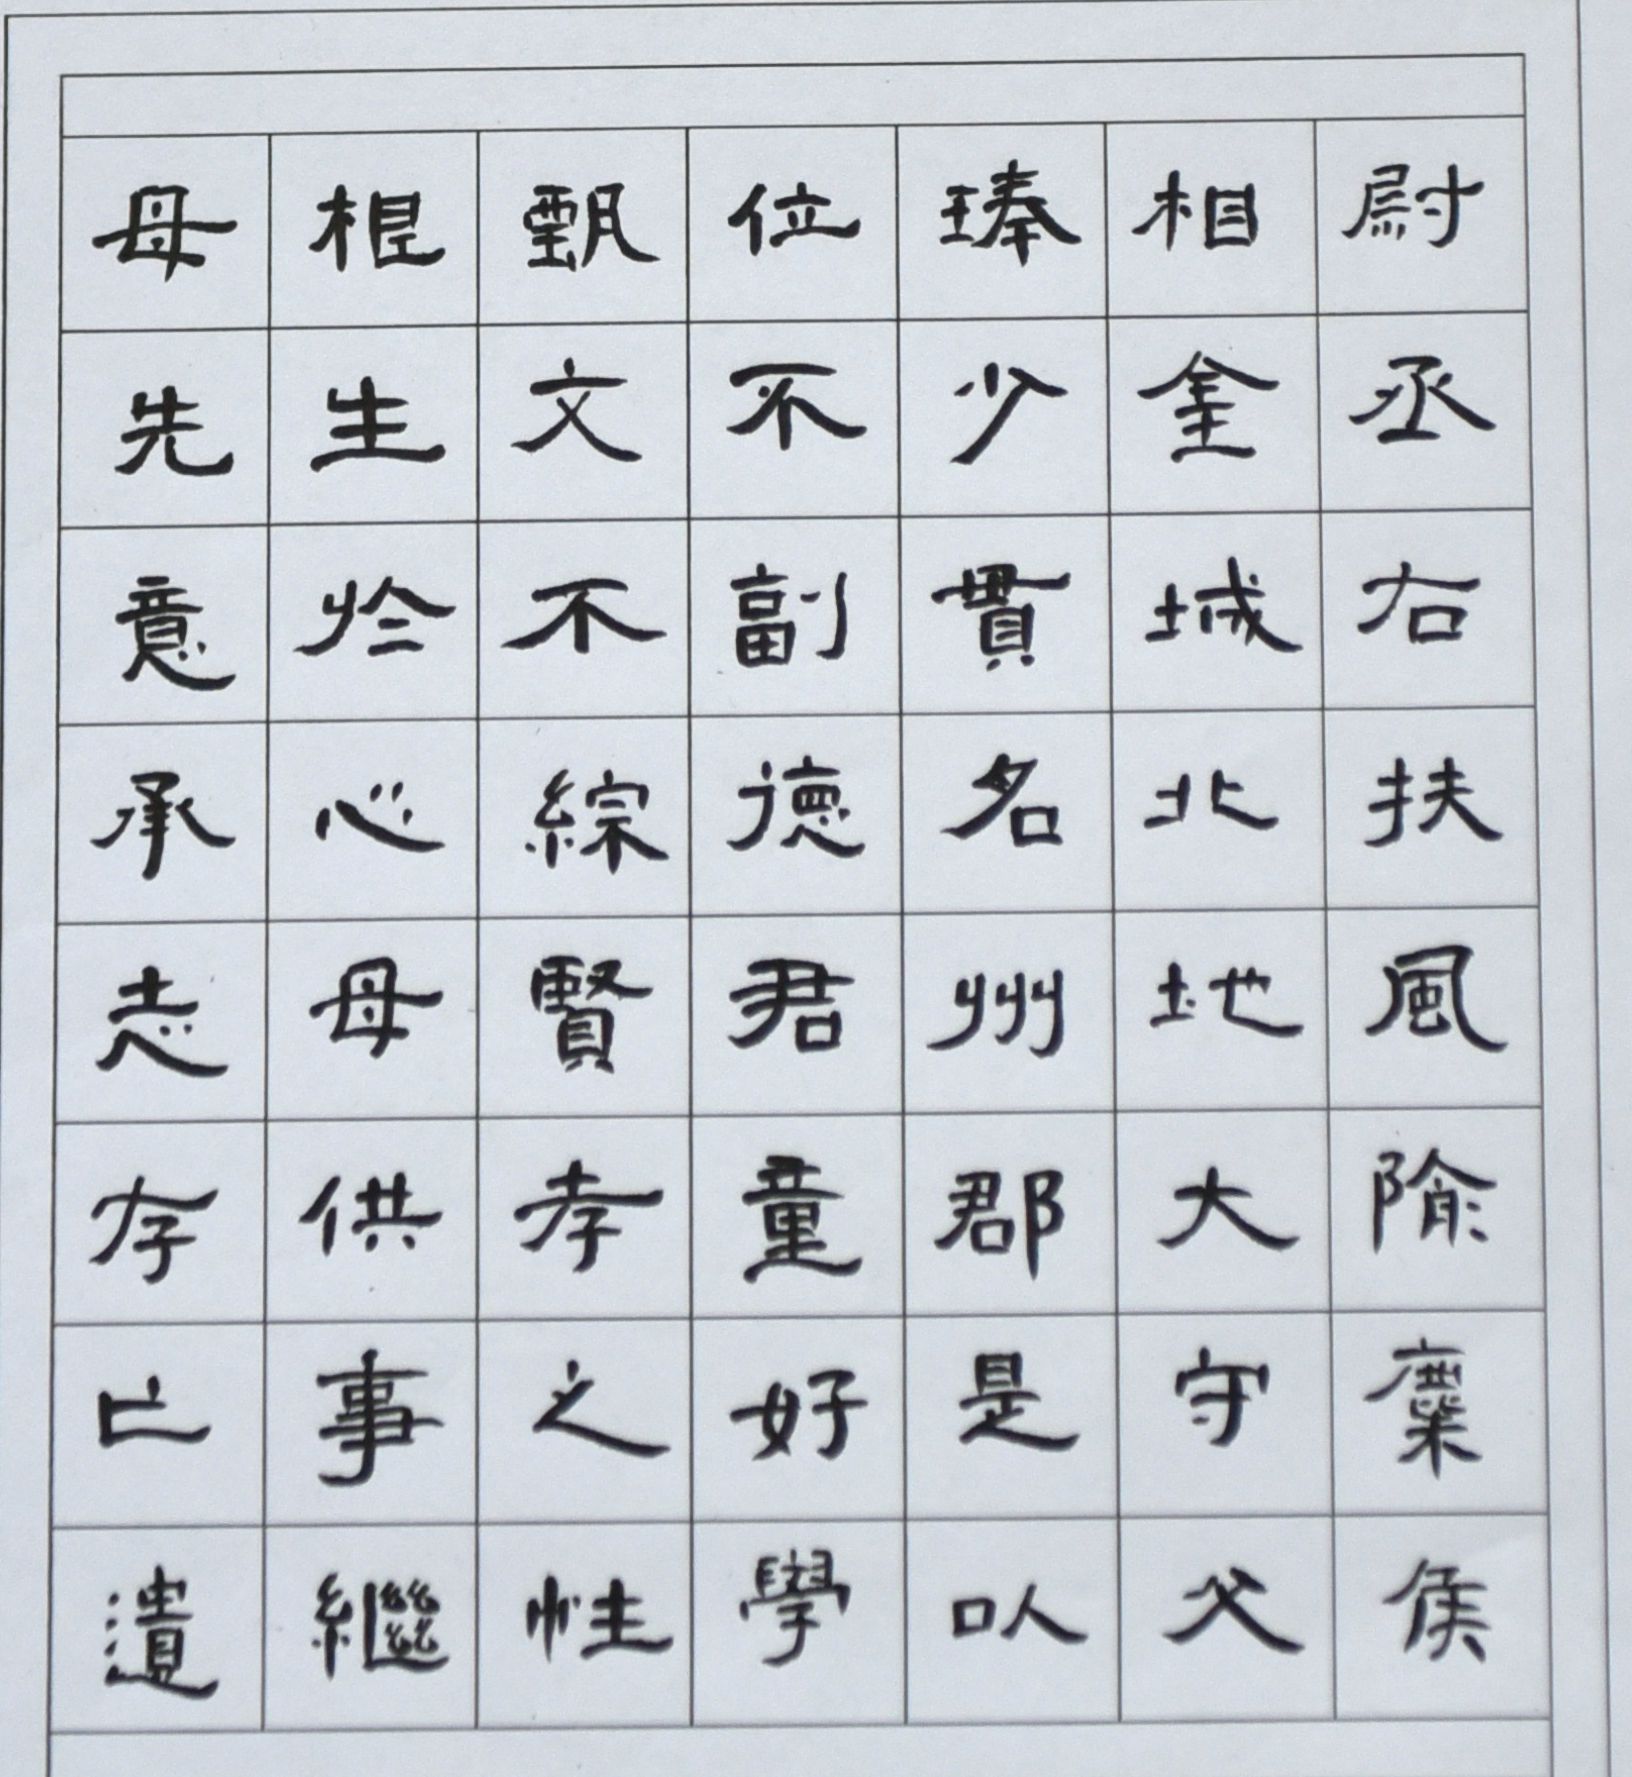 尉丞右扶風隃麋侯
相金城北地大守父
琫少貫名州郡是以
位不副德君童好學
甄文不綜賢孝之性
根生於心母供事繼
母先意承志存亡遺